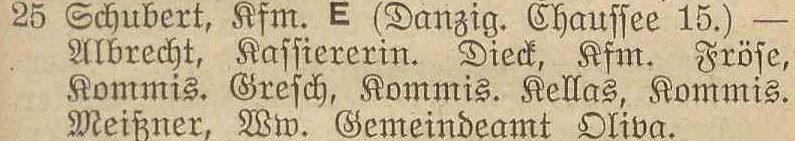 25 Schubert, Kfm. E (Danzig. Chaussee 15.) —
Albrecht, Kassiererin. Dieck, Kfm. Fröse,
Kommis. Gresch, Kommis. Kellas, Kommis.
Meißner, Ww. Gemeindeamt Oliva.